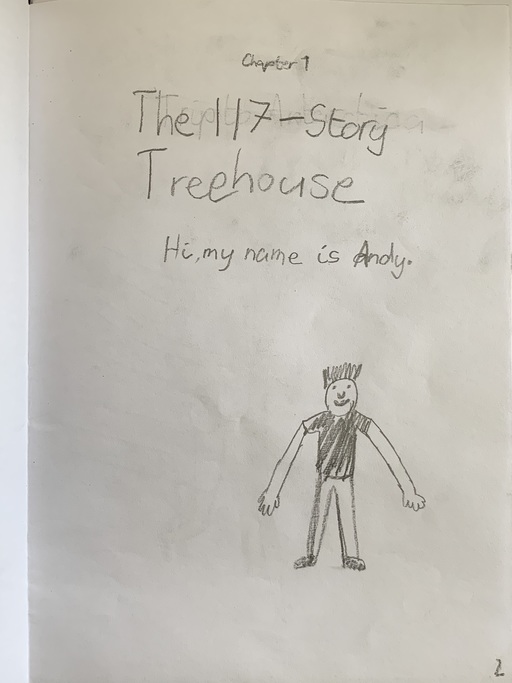 Chapter 1
The 117-Story
Treehouse
Hi, my name is Andy.
2